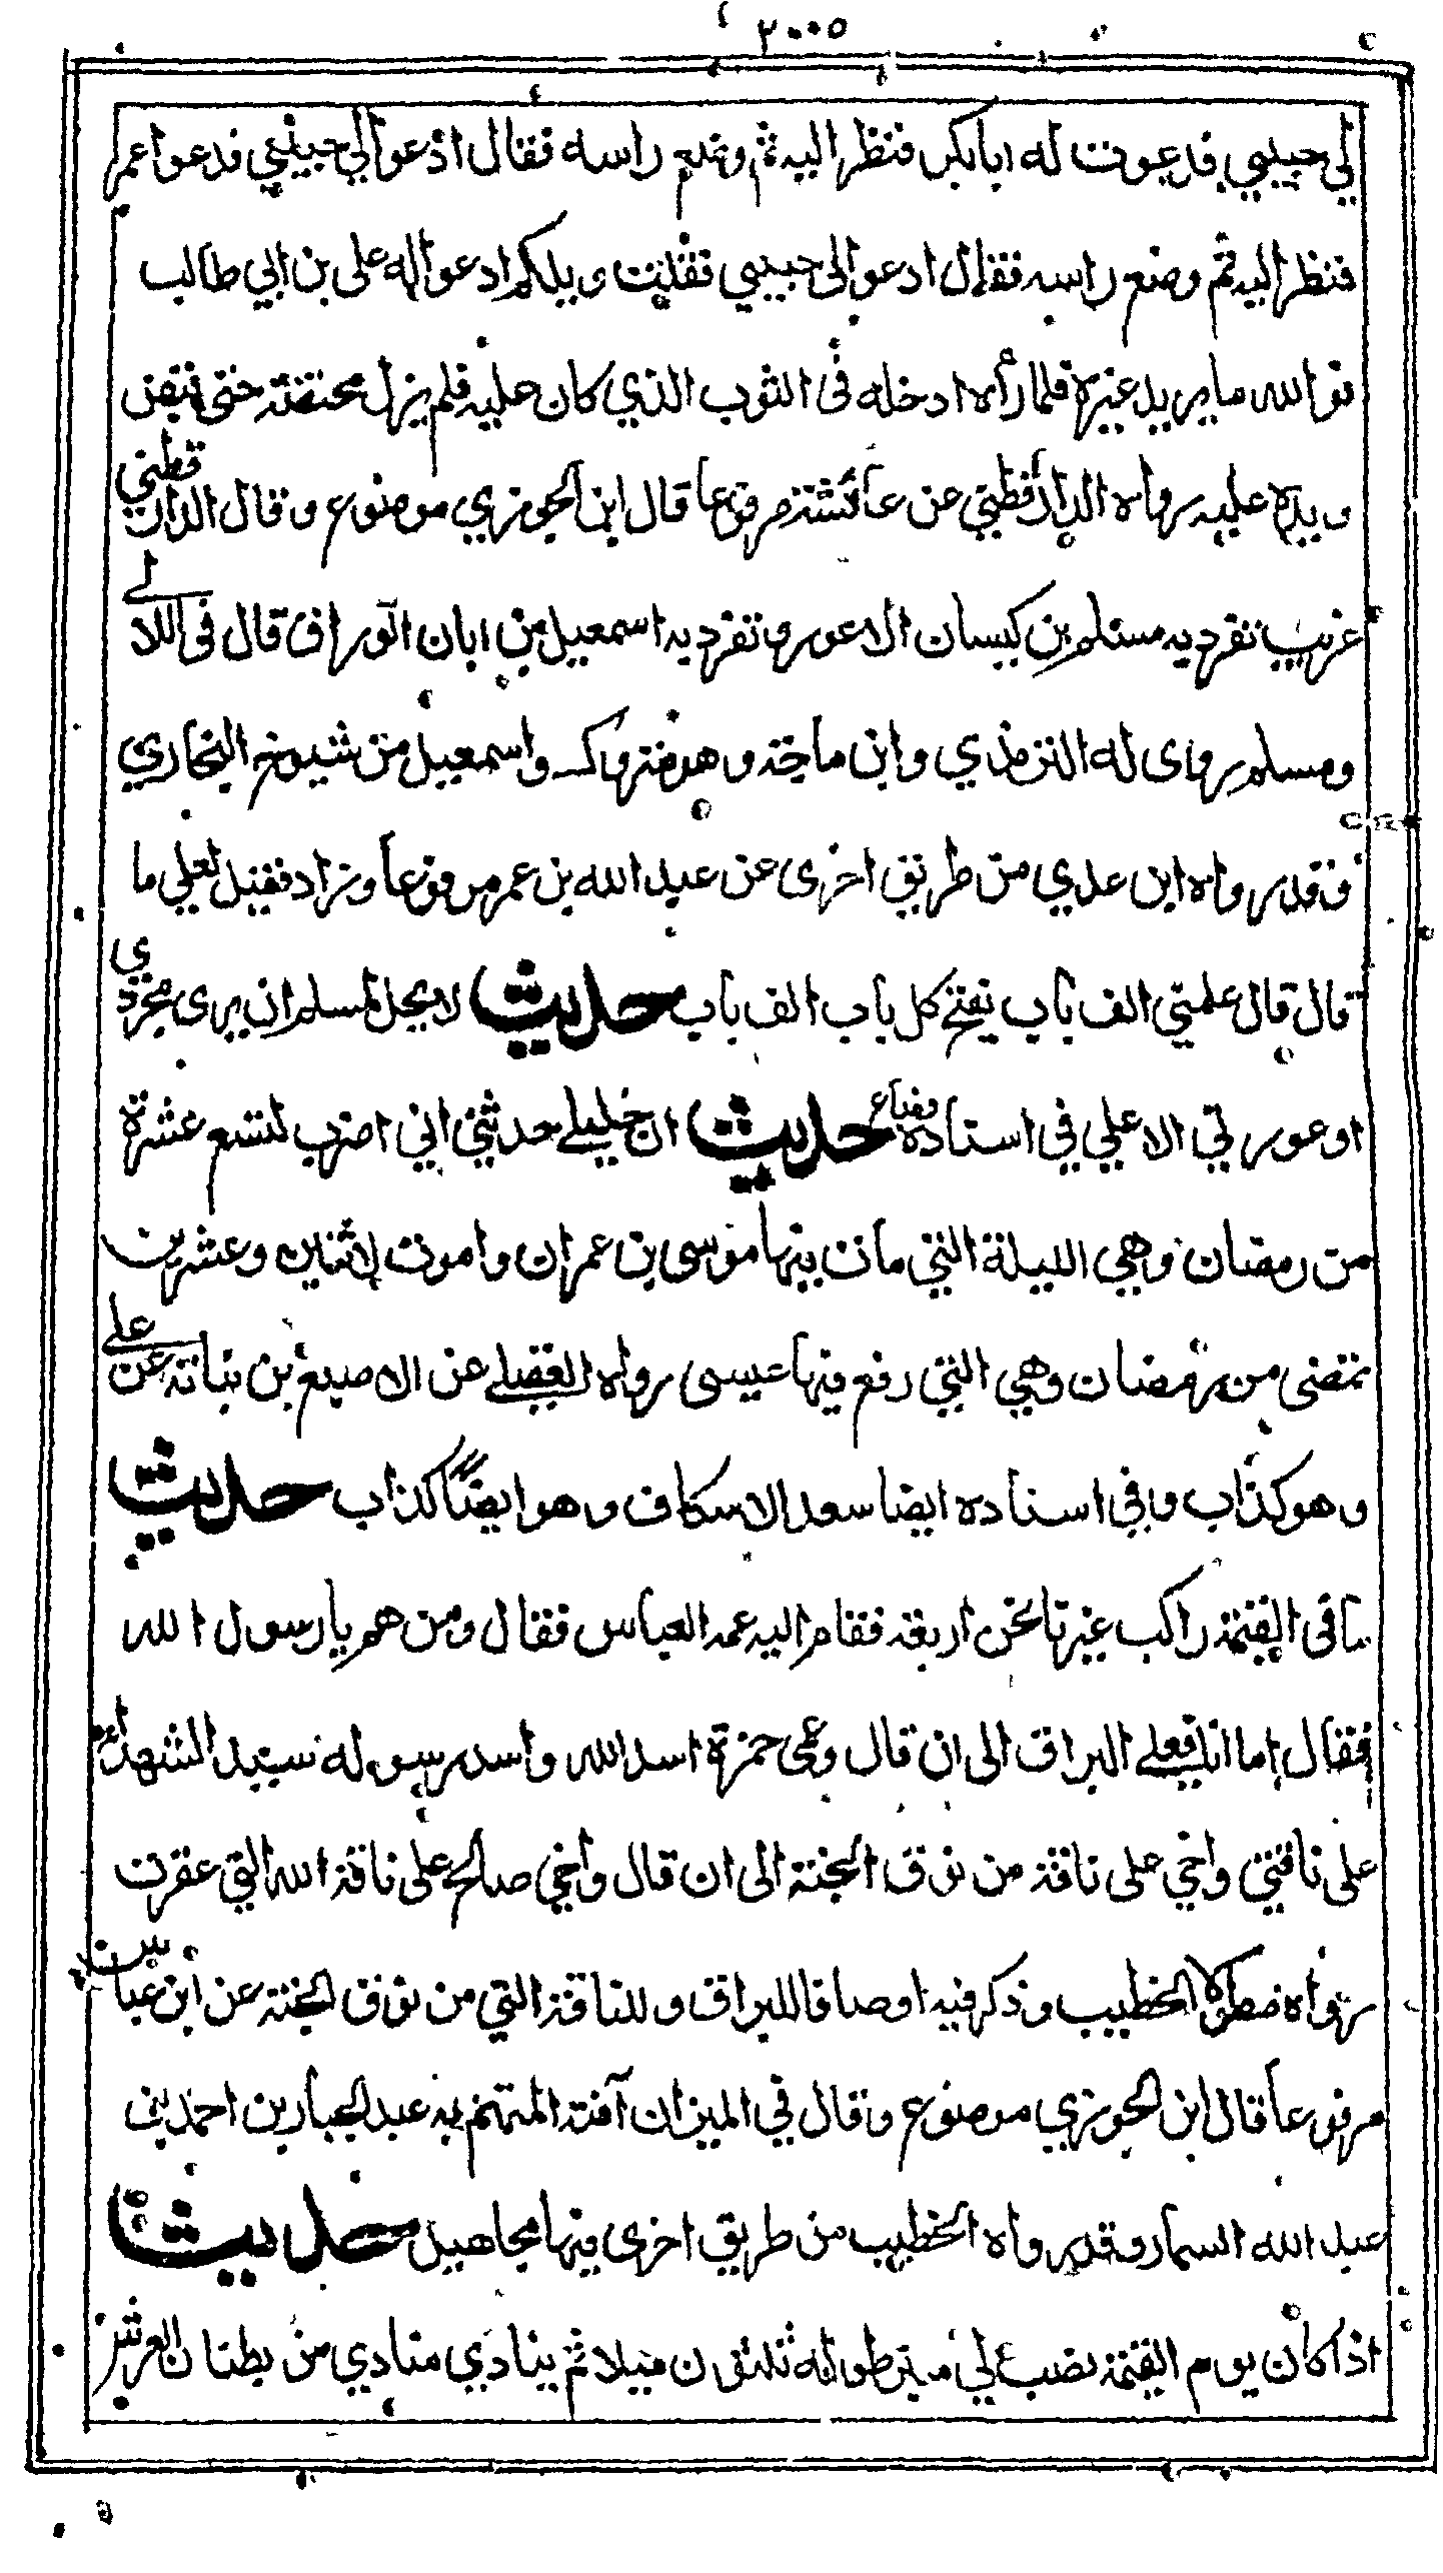 ٢٠٠٥
لي حبيبي فدعوت له ابا بكر فنظر اليه ثم وضع راسه فقال ادعوا لي حبيبي فدعوا عمر
فنظر اليه ثم وضع راسه فقال ادعوا لى حبيبي فقلت ويلكم ادعوا له على بن ابي طالب
فوالله ما يريد غيره فلما رأه ادخله فى الثوب الذي كان عليه فلم يزل محتضنه حتى قبض
ويده عليه رواه الدارقطني عن عائشة مرفوعا قال ابن الجوزي موضوع وقال الدارقطني
غريب تفرد به مسلم بن كيسان الاعور وتفرد به اسمعيل بن ابان الوراق قال فى اللالي
ومسلم روى له الترمذي وابن ماجة وهو متروك واسمعيل من شيوخ البخاري
وقد رواه ابن عدي من طريق اخرى عن عبد الله بن عمر مرفوعا وزاد فقيل لعلي ما
قال قال علمني الف باب يفتح كل باب الف باب حديث لا يحل لمسلم ان يرى مجردي
او عورتي الا علي في اسناده وضاع حديث ان خليلي حدثني اني اضرب لتسع عشرة
من رمضان وهي الليلة التي مات فيها موسى بن عمران واموت لاثنين وعشرين
تمضى من رمضان وهي التي رفع فيها عيسى رواه العقيلي عن الاصبغ بن نباتة عن علي
وهو كذاب وفي اسناده ايضا سعد الاسكاف وهو ايضا كذاب حديث
ما فى القيمة راكب غيرنا نحن اربعة فقام اليه عمه العباس فقال ومن هم يا رسول الله
فقال اما انا فعلى البراق الى ان قال وعمي حمزة اسد الله واسد رسوله سيد الشهداء
على ناقتي واخي على ناقة من نوق الجنة الى ان قال واخي صالح على ناقة الله التي عقرت
رواه مطولا الخطيب وذكر فيه اوصافا للبراق وللناقة التي من نوق الجنة عن ابن عباس
مرفوعا قال ابن الجوزي موضوع وقال في الميزان آفته المتهم به عبد الجبار بن احمد بن
عبد الله السمار وقد رواه الخطيب من طريق اخرى فيها مجاهيل حديث
اذا كان يوم القيمة نصب لي منبر طوله ثلثون ميلا ثم ينادي منادي من بطنان العرش